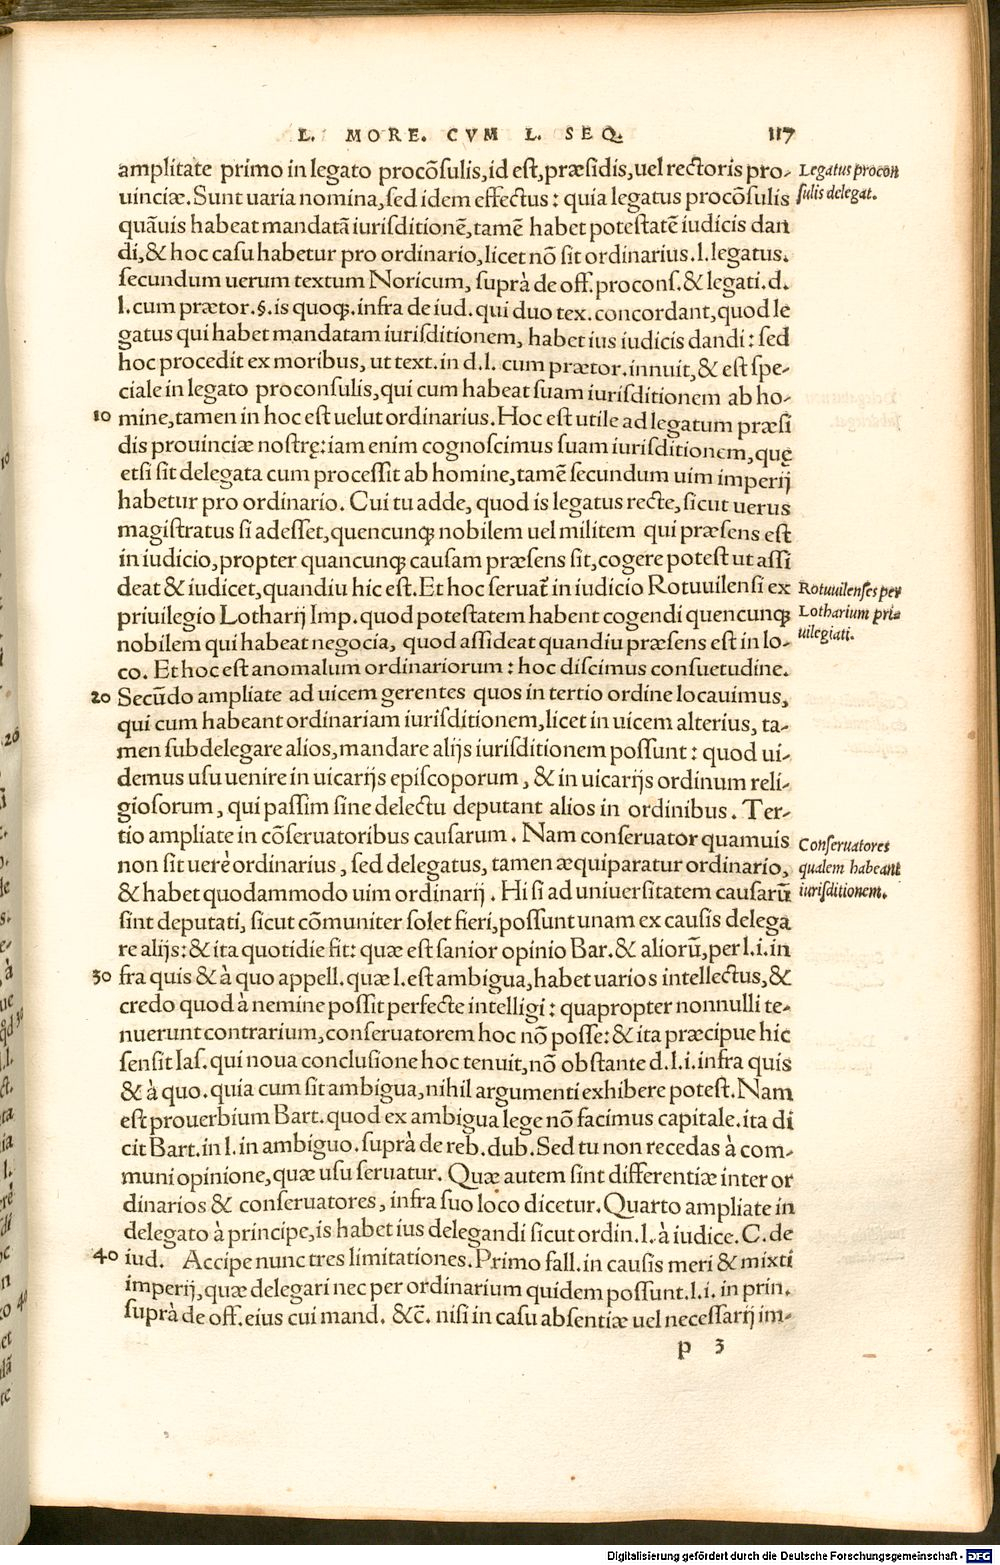 L. MORE. CVM L. SEQ. 117
amplitate primo in legato procōsulis, id est, præsidis, uel rectoris pro-
uinciæ. Sunt uaria nomina, sed idem effectus: quia legatus procōsulis
quāuis habeat mandatā iurisditionē, tamē habet potestatē iudicis dan
di, & hoc casu habetur pro ordinario, licet nō sit ordinarius. l. legatus.
secundum uerum textum Noricum, suprà de off. procons. & legati. d.
l. cum prætor. §. is quoq;. infra de iud. qui duo tex. concordant, quod le
gatus qui habet mandatam iurisditionem, habet ius iudicis dandi: sed
hoc procedit ex moribus, ut text. in d. l. cum prætor. innuit, & est spe-
ciale in legato proconsulis, qui cum habeat suam iurisditionem ab ho-
10 mine, tamen in hoc est uelut ordinarius. Hoc est utile ad legatum præsi
dis prouinciæ nostrę: iam enim cognoscimus suam iurisditionem, quę
etsi sit delegata cum processit ab homine, tamē secundum uim imperij
habetur pro ordinario. Cui tu adde, quod is legatus recte, sicut uerus
magistratus si adesset, quencunq; nobilem uel militem qui præsens est
in iudicio, propter quancunq; causam præsens sit, cogere potest ut assi
deat & iudicet, quandiu hic est. Et hoc seruat̃ in iudicio Rotuuilensi ex
priuilegio Lotharij Imp. quod potestatem habent cogendi quencunq;
nobilem qui habeat negocia, quod assideat quandiu præsens est in lo-
co. Et hoc est anomalum ordinariorum: hoc discimus consuetudine.
20 Secūdo ampliate ad uicem gerentes quos in tertio ordine locauimus,
qui cum habeant ordinariam iurisditionem, licet in uicem alterius, ta-
men subdelegare alios, mandare alijs iurisditionem possunt: quod ui-
demus usu uenire in uicarijs episcoporum, & in uicarijs ordinum reli-
giosorum, qui passim sine delectu deputant alios in ordinibus. Ter-
tio ampliate in cōseruatoribus causarum. Nam conseruator quamuis
non sit uerè ordinarius, sed delegatus, tamen æquiparatur ordinario,
& habet quodammodo uim ordinarij. Hi si ad uniuersitatem causarū
sint deputati, sicut cōmuniter solet fieri, possunt unam ex causis delega
re alijs: & ita quotidie fit: quæ est sanior opinio Bar. & aliorū, per l. i. in
30 fra quis & à quo appell. quæ l. est ambigua, habet uarios intellectus, &
credo quod à nemine possit perfecte intelligi: quapropter nonnulli te-
nuerunt contrarium, conseruatorem hoc nō posse: & ita præcipue hic
sensit Ias. qui noua conclusione hoc tenuit, nō obstante d. l. i. infra quis
& à quo. quia cum sit ambigua, nihil argumenti exhibere potest. Nam
est prouerbium Bart. quod ex ambigua lege nō facimus capitale. ita di
cit Bart. in l. in ambiguo. suprà de reb. dub. Sed tu non recedas à com-
muni opinione, quæ usu seruatur. Quæ autem sint differentiæ inter or
dinarios & conseruatores, infra suo loco dicetur. Quarto ampliate in
delegato à principe, is habet ius delegandi sicut ordin. l. à iudice. C. de
40 iud. Accipe nunc tres limitationes. Primo fall. in causis meri & mixti
imperij, quæ delegari nec per ordinarium quidem possunt. l. i. in prin.
suprà de off. eius cui mand. &c̄. nisi in casu absentiæ uel necessarij im-
p 3
Legatus procon
sulis delegat.
Rotuuilenses per
Lotharium pri-
uilegiati.
Conseruatores
qualem habeant
iurisditionem.
Digitalisierung gefördert durch die Deutsche Forschungsgemeinschaft - DFG